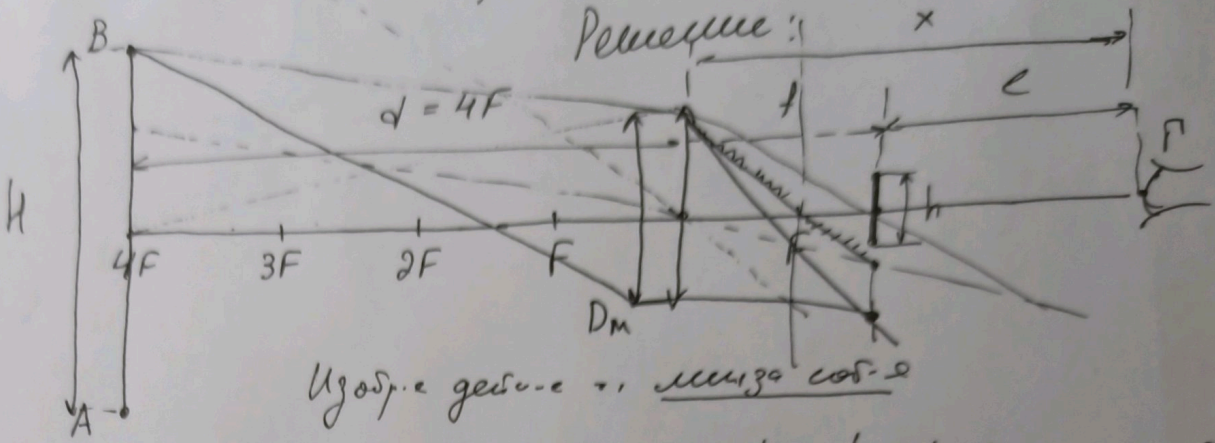 Решение:
x
B
d = 4F
f
l
Г
H
h
4F
3F
2F
F
F
Dм
Изобр-е дейс-е
линза соб-я
A